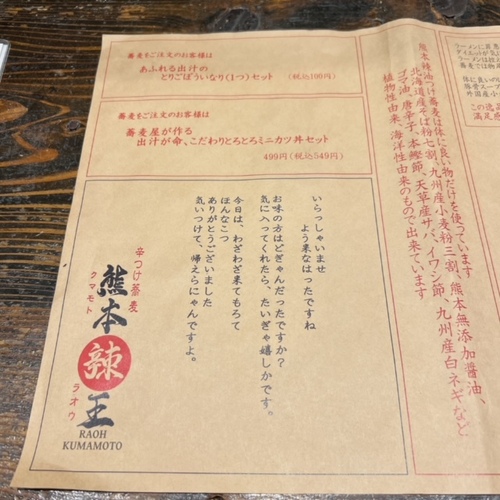 蕎麦をご注文のお客様は
あふれる出汁の
とりごぼういなり(1つ)セット (税込100円)
蕎麦をご注文のお客様は
蕎麦屋が作る
出汁が命、こだわりとろとろミニカツ丼セット
499円(税込549円)
熊本辣油つけ蕎麦は体に良い物だけを使っています
北海道産そば粉七割、九州産小麦粉三割、熊本無添加醤油、
ゴマ油、唐辛子、本鰹節、天草産サバ、イワシ節、九州産白ネギなど
植物性由来、海洋性由来のもので出来ています
いらっしゃいませ
よう来なはったですね
お味の方はどぎゃんだったですか?
気に入ってくれたら、たいぎゃ嬉しかです。
今日は、わざわざ来てもろて
ほんなこつ
ありがとうございました
気いつけて、帰えらにゃんですよ。
辛つけ蕎麦
熊本
クマモト
辣王
ラオウ
RAOH
KUMAMOTO